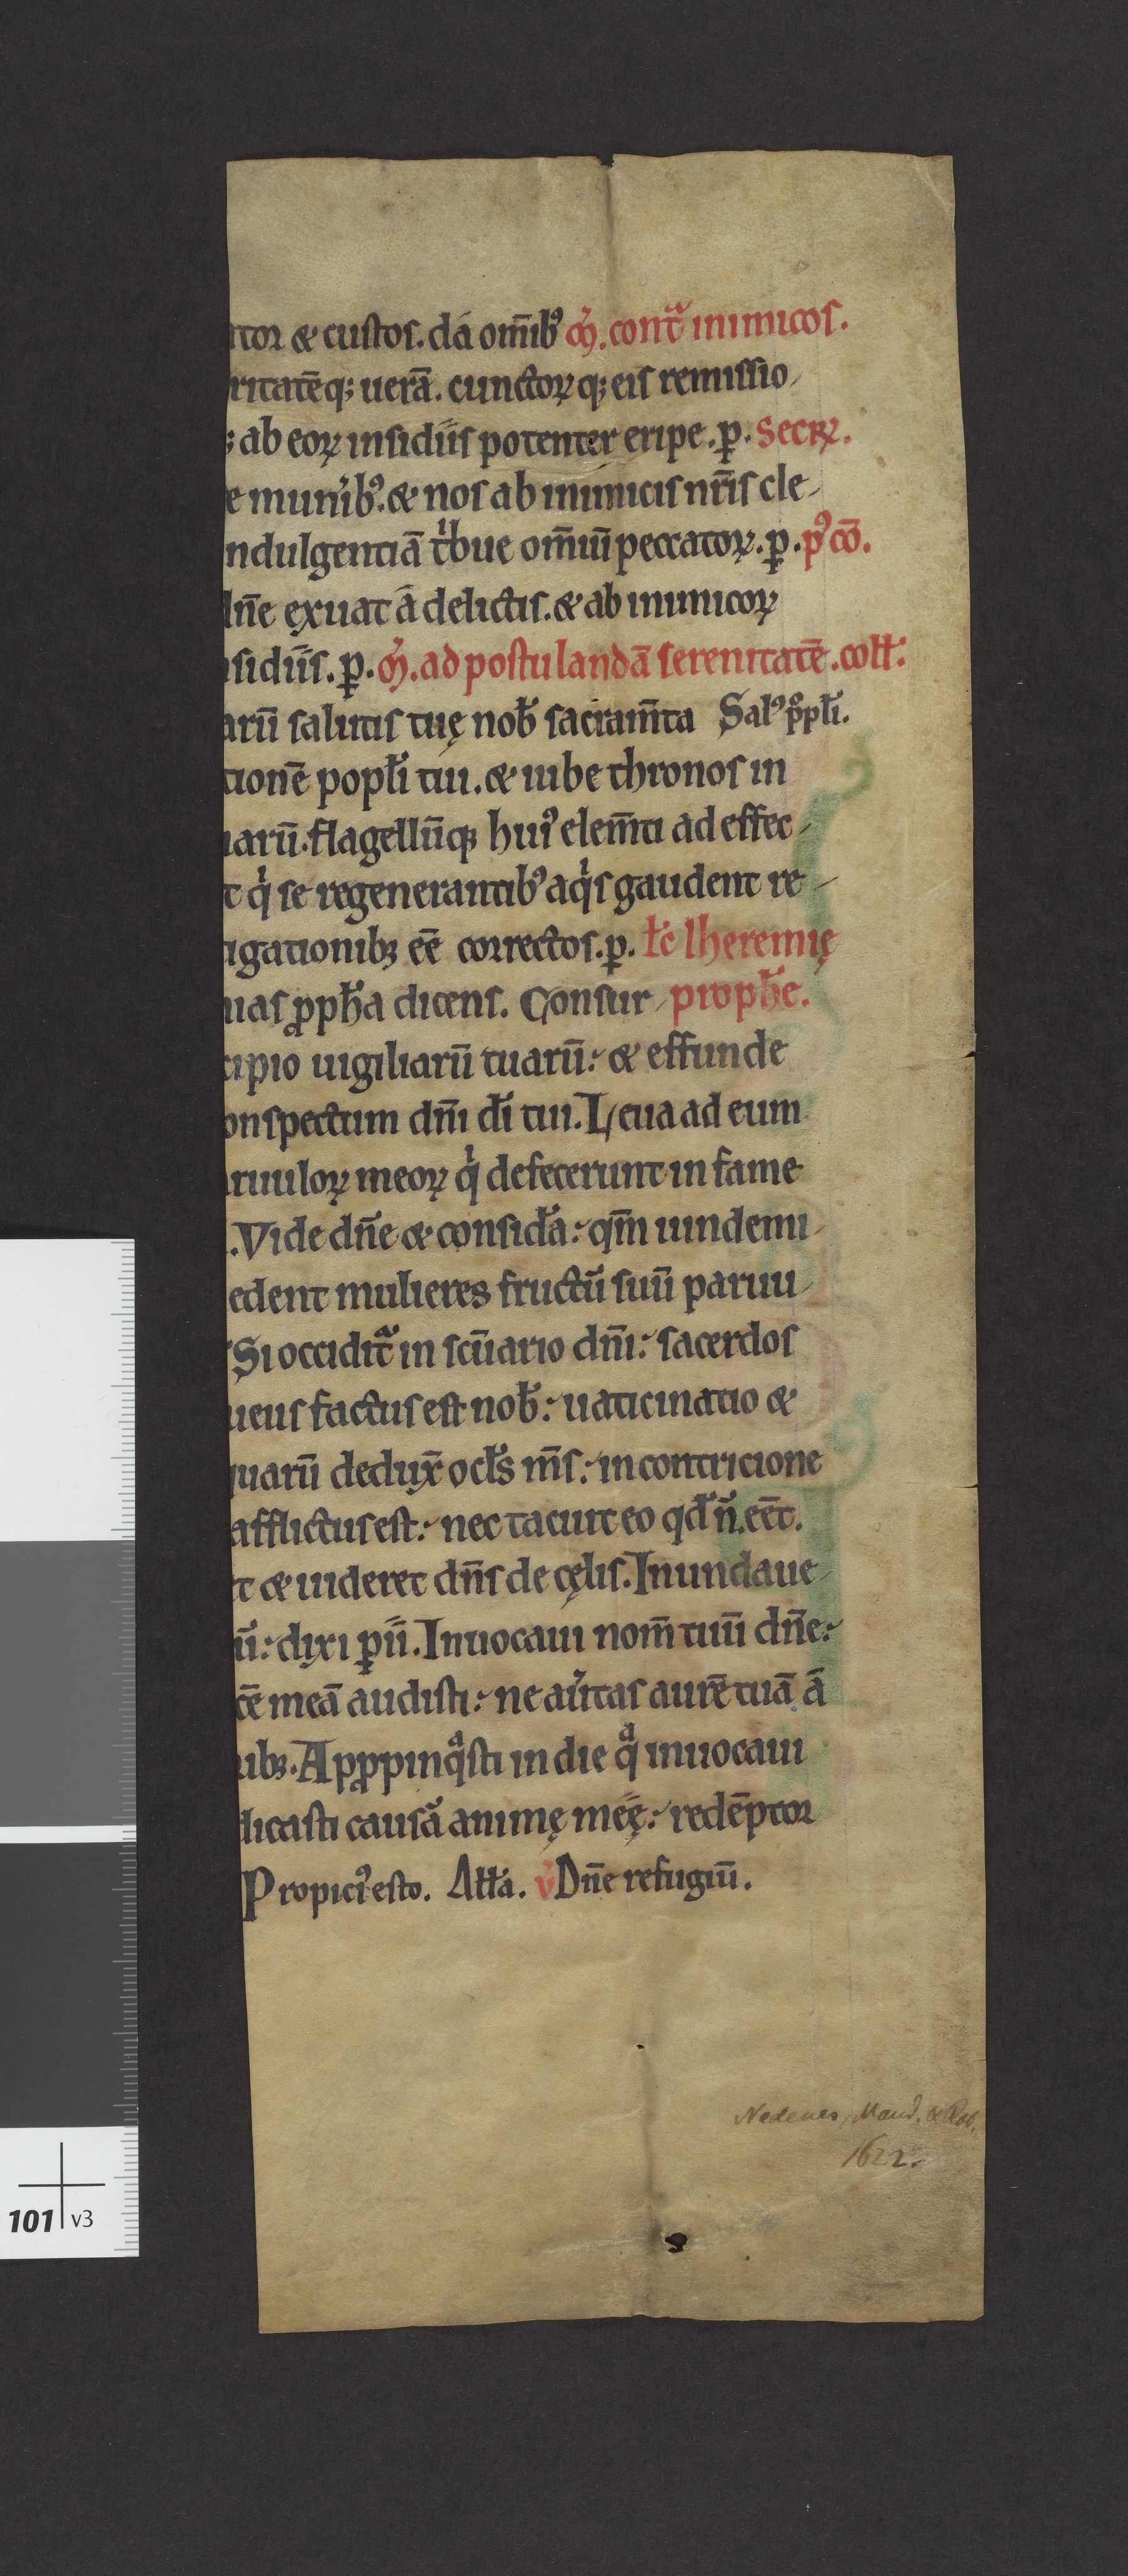 tor & custos. da om̄ibꝰ m̄. cont̄ᵃ inimicos.
ritatēq; uerā. cunctoꝝq; eis remissio-
; ab eoꝝ insidiis potenter eripe. p̱. Secꝝ.
e munībꝰ. & nos ab inimicis nr̄is cle-
ndulgentiā tͥbue om̄iū peccatoꝝ. p̱. pꝰ cō.
dn̄e exuat a delictis. & ab inimicoꝝ
sidiis. p̱. m̄. ad postulandā serenitatē. coll̄.
arū salutis tuę nob̄ sacram̄ta Salꝰ ppl̄i.
tionē popl̄i tui. & iube thronos in
uarū. flagellūqꝫ huiꝰ elem̄ti ad effec-
t qͥ se regenerantibꝰ aqͥs gaudent re-
igationibꝫ eē correctos. p̱. l̄c Iheremię
ias ꝓph̄a dicens. Consur- proph̄e.
cipio uigiliarū tuarū: & effunde
onspectum dn̄i dī tui. Leua ad eum
ruuloꝝ meoꝝ qͥ defecerunt in fame
. Vide dn̄e & considā: qm̄ uindemi-
edent mulieres fructū suū paruu-
Si occidit̄ᵃ in scūario dn̄i: sacerdos
ueus factus est nob̄: uaticinatio &
uarū dedux̄ ocl̄s m̄s: in contricione
afflictus est: nec tacuit eo qd̄ n̄ eēt.
t & uideret dn̄s de cęlis. Inundaue-
ū: dixi p̱ii. Inuocaui nom̄ tuū dn̄e:
cē meā audisti: ne aūtas aurē tuā a
ibꝫ. Apꝓpinqᵃsti in die qᵃ inuocaui
dicasti causā animę meę: redēptor
Propiciꝰ esto. All̄a. v̄ Dn̄e refugiū.
Nedenes, Mand. & Rob.
1622.